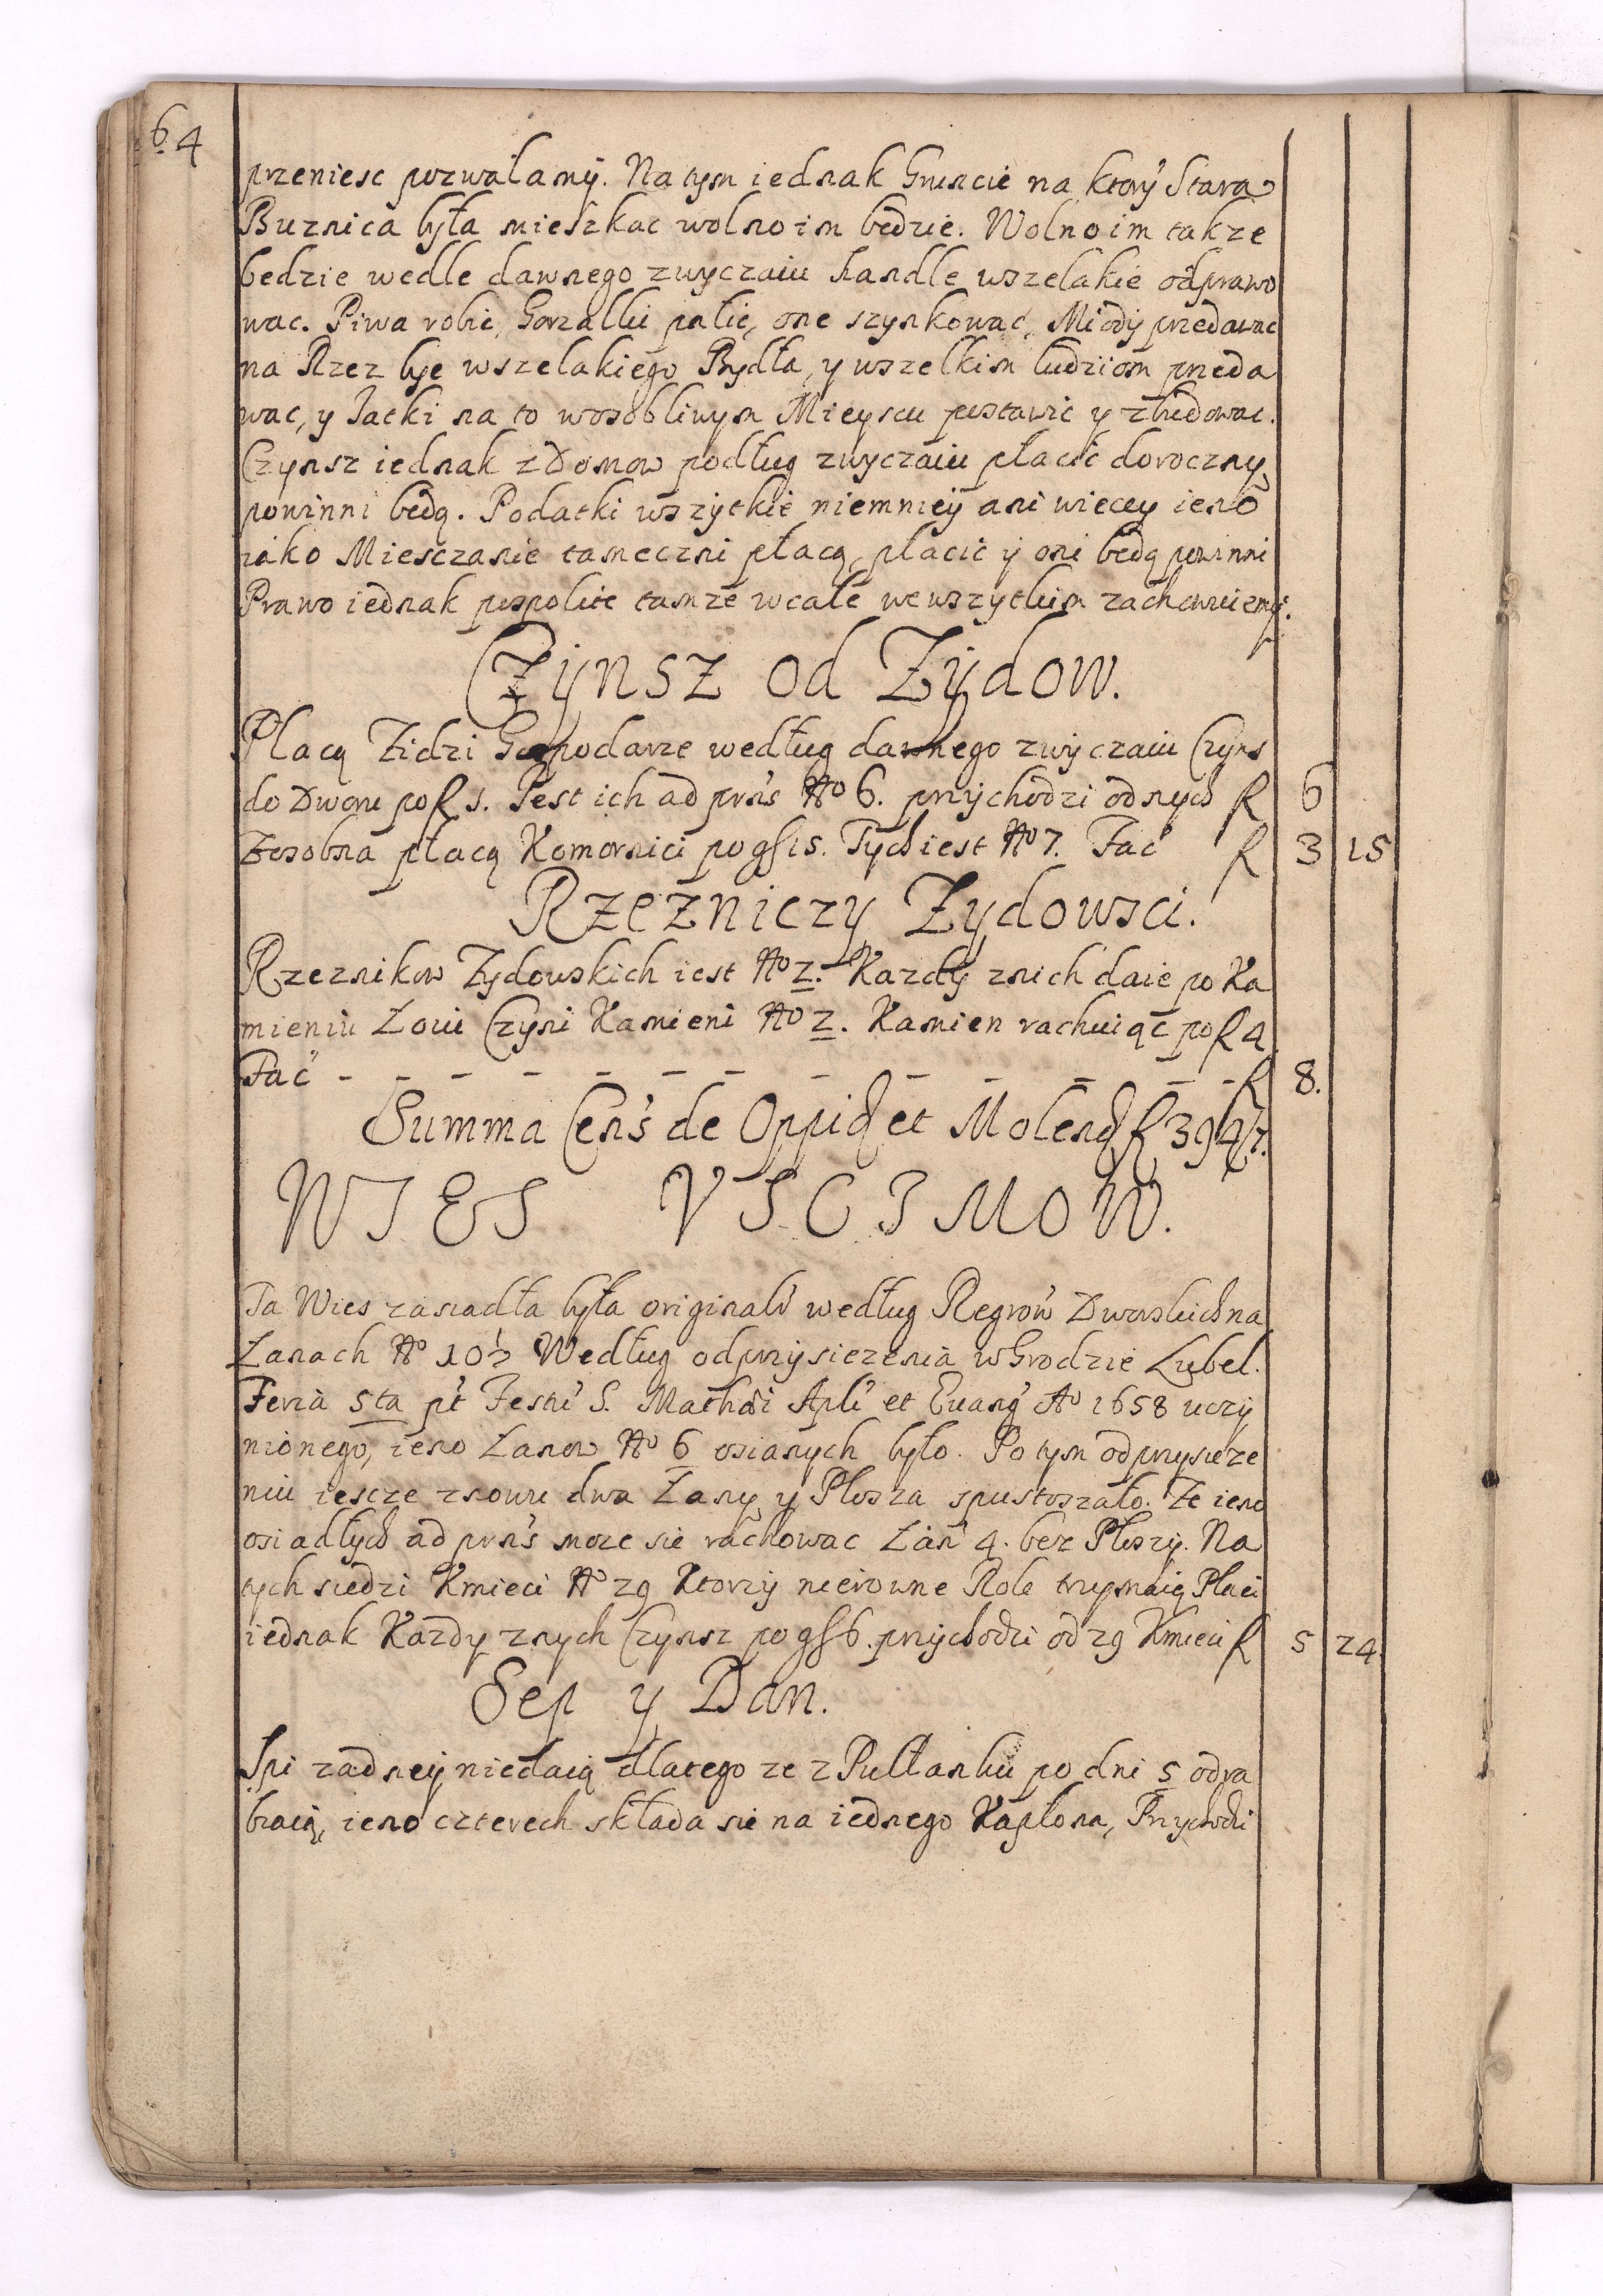 64
przeniesc pozwalamy. Na tym iednak Gruncie na ktory Stara
Buznica była mieszkac wolno im bedzie. Wolno im takze
bedzie wedle dawnego zwyczaiu handle wszelakie odprawo
wac. Piwa robic, Gorzałki palic, one szynkowac, Miody przedawac
na Rzez bye wszelakiego Bydła, y wszelkim ludziom przeda
wac, y Jatki na to wosobliwym Mieyscu postawic y zbudowac.
Czynsz iednak z Domow podług zwyczaiu płacic doroczny
powinni będą. Podatki wszytkie niemniey ani wiecey ieno
iako Miesczanie tameczni płacą, płacic y oni będą powinni
Prawo iednak pospolite tamze wcale wewszytkim zachowuiemy.
Czynsz od Zydow.
Placą Zidzi Gospodarze według dawnego zwyczaiu Czyns
do Dworu po f 1. Jest ich ad prns No 6. przychodzi od nych f 6
Zosobna płacą Komornici po gs 15. Tych iest No 7. Fac f 3 15
Rzezniczy Zydowsci.
Rzeznikow Zydowskich iest No 2. Kazdy znich daie po Ka
mieniu Łoiu Czyni Kamieni No 2. Kamien rachuiąc po f 4
Fac - - - - - - - - - - - - f 8.
Summa Cens de Oppid et Molend f 394/7.
WIES VSCIMOW.
Ta Wies zasiadła była originali według Regrow Dworskich na
Łanach No 10½ Według odprzysiezenia w Grodzie Lubel.
Feria 5ta pt Festu S. Mathæi Apli et Euang Ao 1658 uczy
nionego, ieno Łanow No 6 osianych było. Po tym odprzysieze
niu iescze znowu dwa Łany y Płosza spustoszało. Ze ieno
osiadłych ad prns moze sie rachowac Łan 4. bez Płoszy. Na
tych siedzi Kmieci No 29 Ktorzy nierowne Role trzymaią Płaci
iednak Kazdy znych Czynsz po gs 6. przychodzi od 29 Kmieci f 5 24
Sep y Dan.
Spi zadney niedaią dlatego ze z Pułłanku po dni 5 odra
biaią, ieno czterech składa sie na iednego Kapłona, Przychodzi